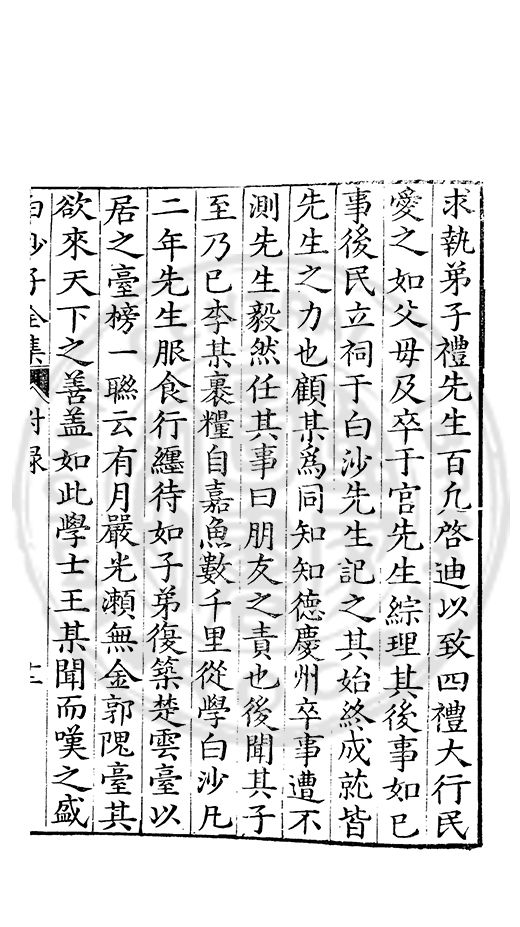 求執弟子禮先生百凡啓迪以致四禮大行民
愛之如父母及卒于官先生綜理其後事如已
事後民立祠于白沙先生記之其始終成就皆
先生之力也顧某爲同知知德慶州卒事遭不
測先生毅然任其事曰朋友之責也後聞其子
至乃已李某裹糧自嘉魚數千里從學白沙凡
二年先生服食行纏待如子弟復築楚雲臺以
居之臺榜一聯云有月嚴光瀨無金郭隗臺其
欲來天下之善盖如此學士王某聞而嘆之盛
白沙子全集 附録